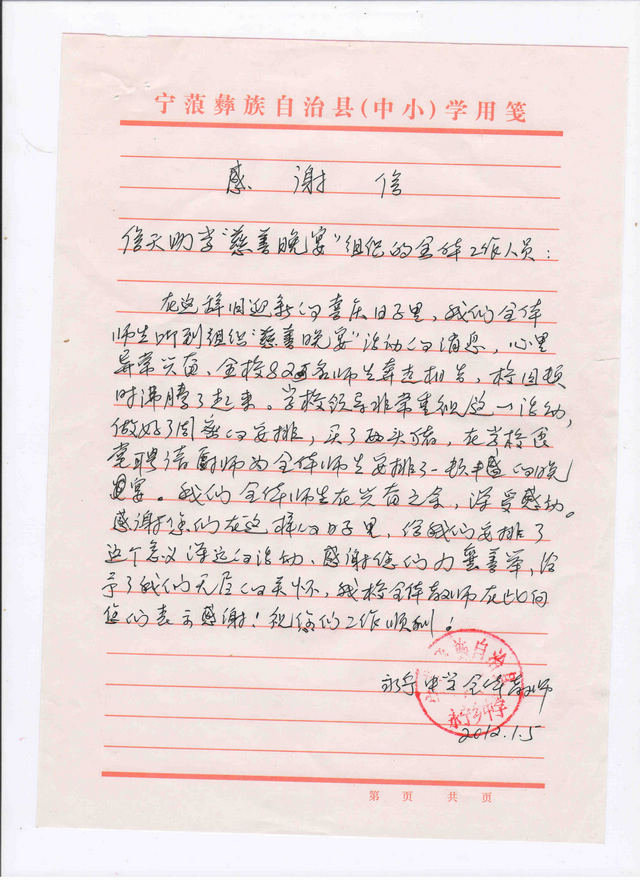 宁蒗彝族自治县(中小)学用笺
感谢信
信天助学“慈善晚宴”组织的全体工作人员:
在这辞旧迎新的喜庆日子里,我们全体
师生听到组织“慈善晚宴”活动的消息,心里
异常兴奋、全校8名师生奔走相告,校园顿
时沸腾了起来。学校领导非常重视这一活动,
做好了周密的安排,买了两头猪,在学校食
堂聘请厨师为全体师生安排了一顿丰盛的晚
宴。我们全体师生在兴奋之余,深受感动。
感谢您们在这样的日子里,给我们安排了
这个意义深远的活动、感谢您们力襄善举,给
予了我们无尽的关怀,我校全体教师在此向
您们表示感谢!祝您们工作顺利!
永宁中学全体教师
彝族自治县
永宁乡中学
2012.1.5
第 页 共 页